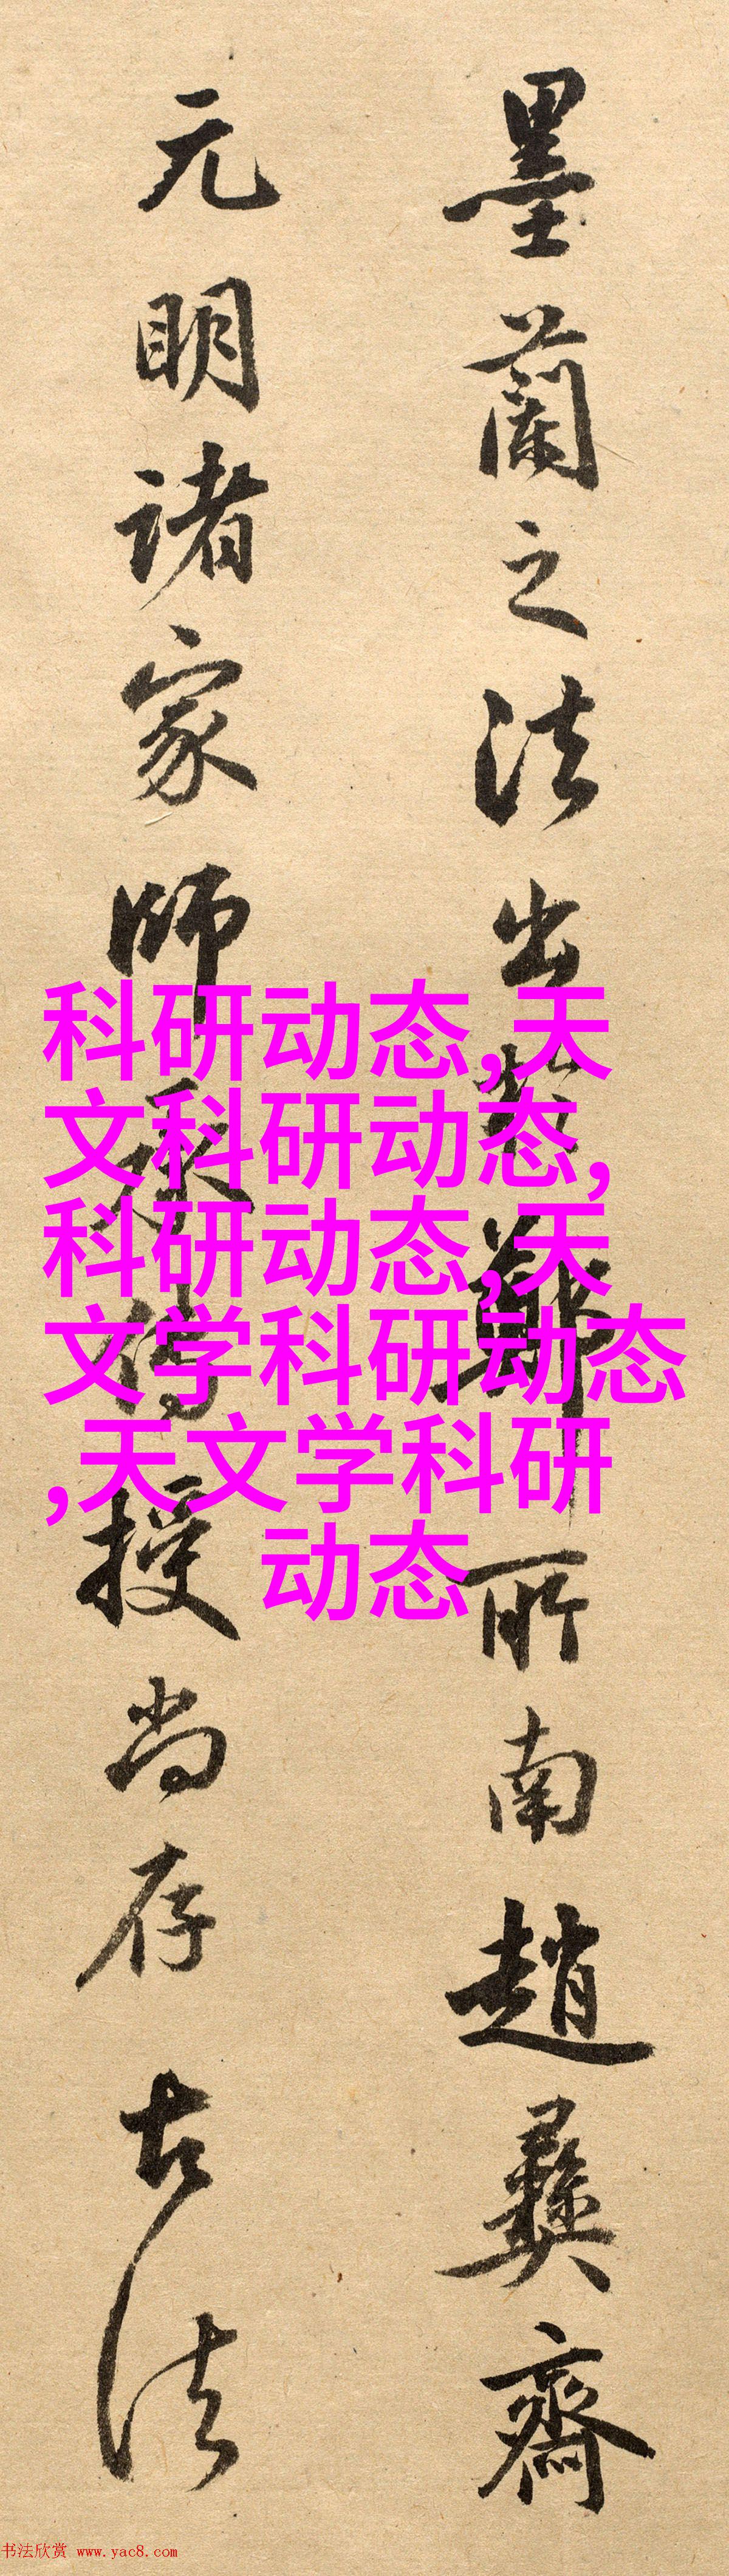 墨蘭之法出於鄭所南趙彝齋
元明诸家師承傳授尚存古法
科研动态,天
文科研动态,
科研动态,天
文学科研动态
,天文学科研
动态
书法欣赏 www.yac8.com